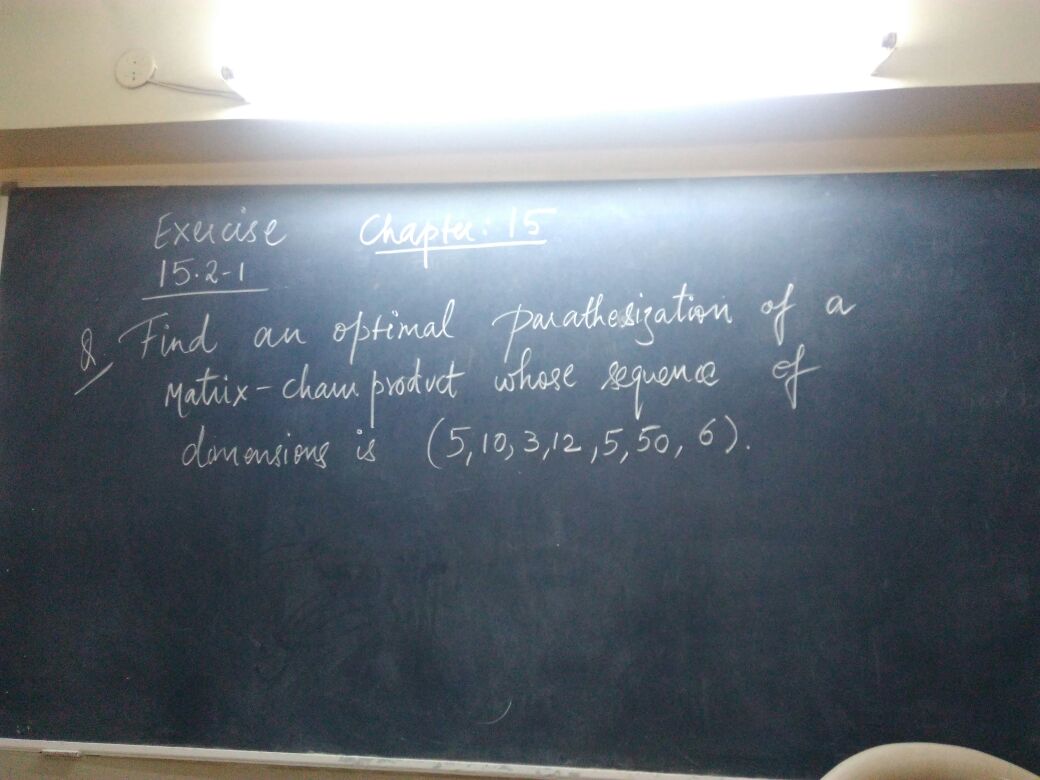 Exercise Chapter: 15
15.2-1
Q, Find an optimal parathesization of a
Matrix-chain product whose sequence of
dimensions is (5,10,3,12,5,50,6).